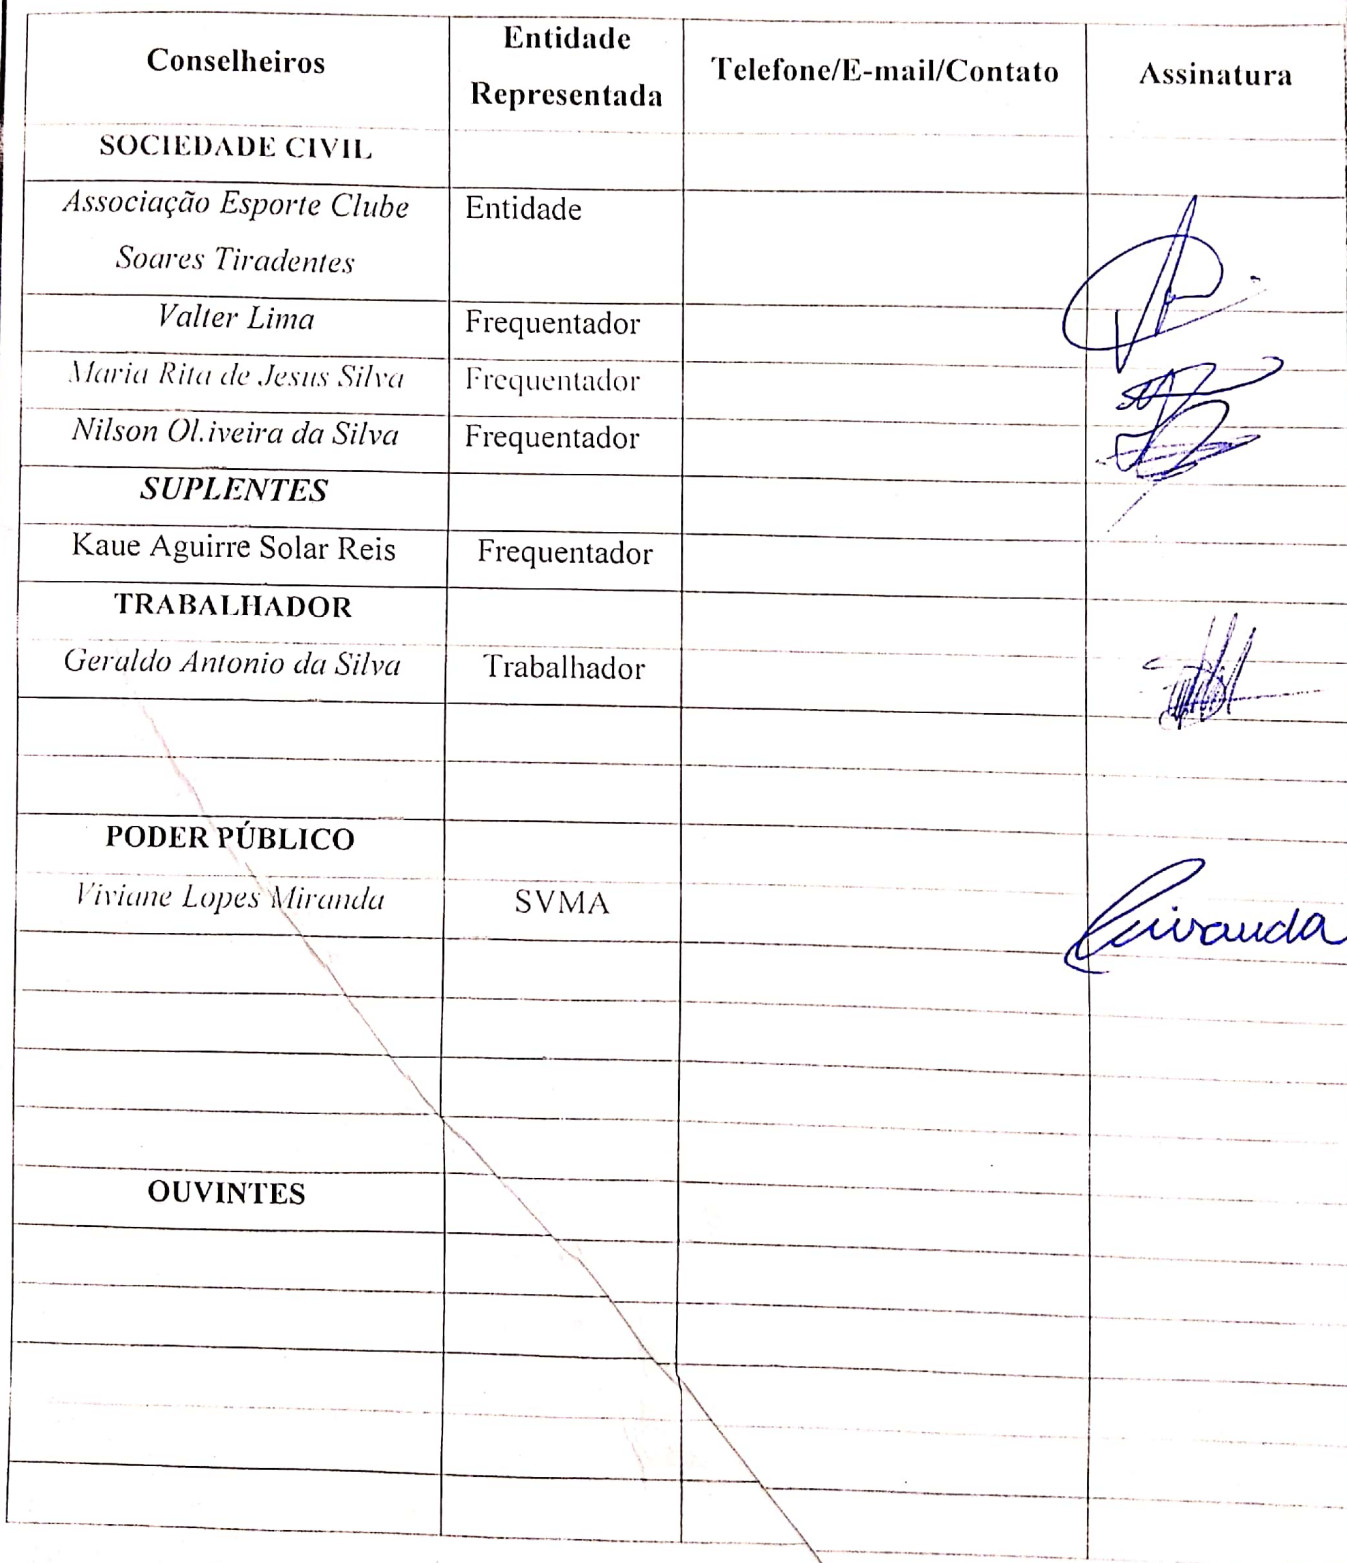 Conselheiros
Entidade
Representada
Telefone/E-mail/Contato
Assinatura
SOCIEDADE CIVIL
Associação Esporte Clube
Soares Tiradentes
Entidade
Valter Lima
Frequentador
Maria Rita de Jesus Silva
Frequentador
Nilson Ol.iveira da Silva
Frequentador
SUPLENTES
Kaue Aguirre Solar Reis
Frequentador
TRABALHADOR
Geraldo Antonio da Silva
Trabalhador
PODER PÚBLICO
Viviane Lopes Miranda
SVMA
OUVINTES